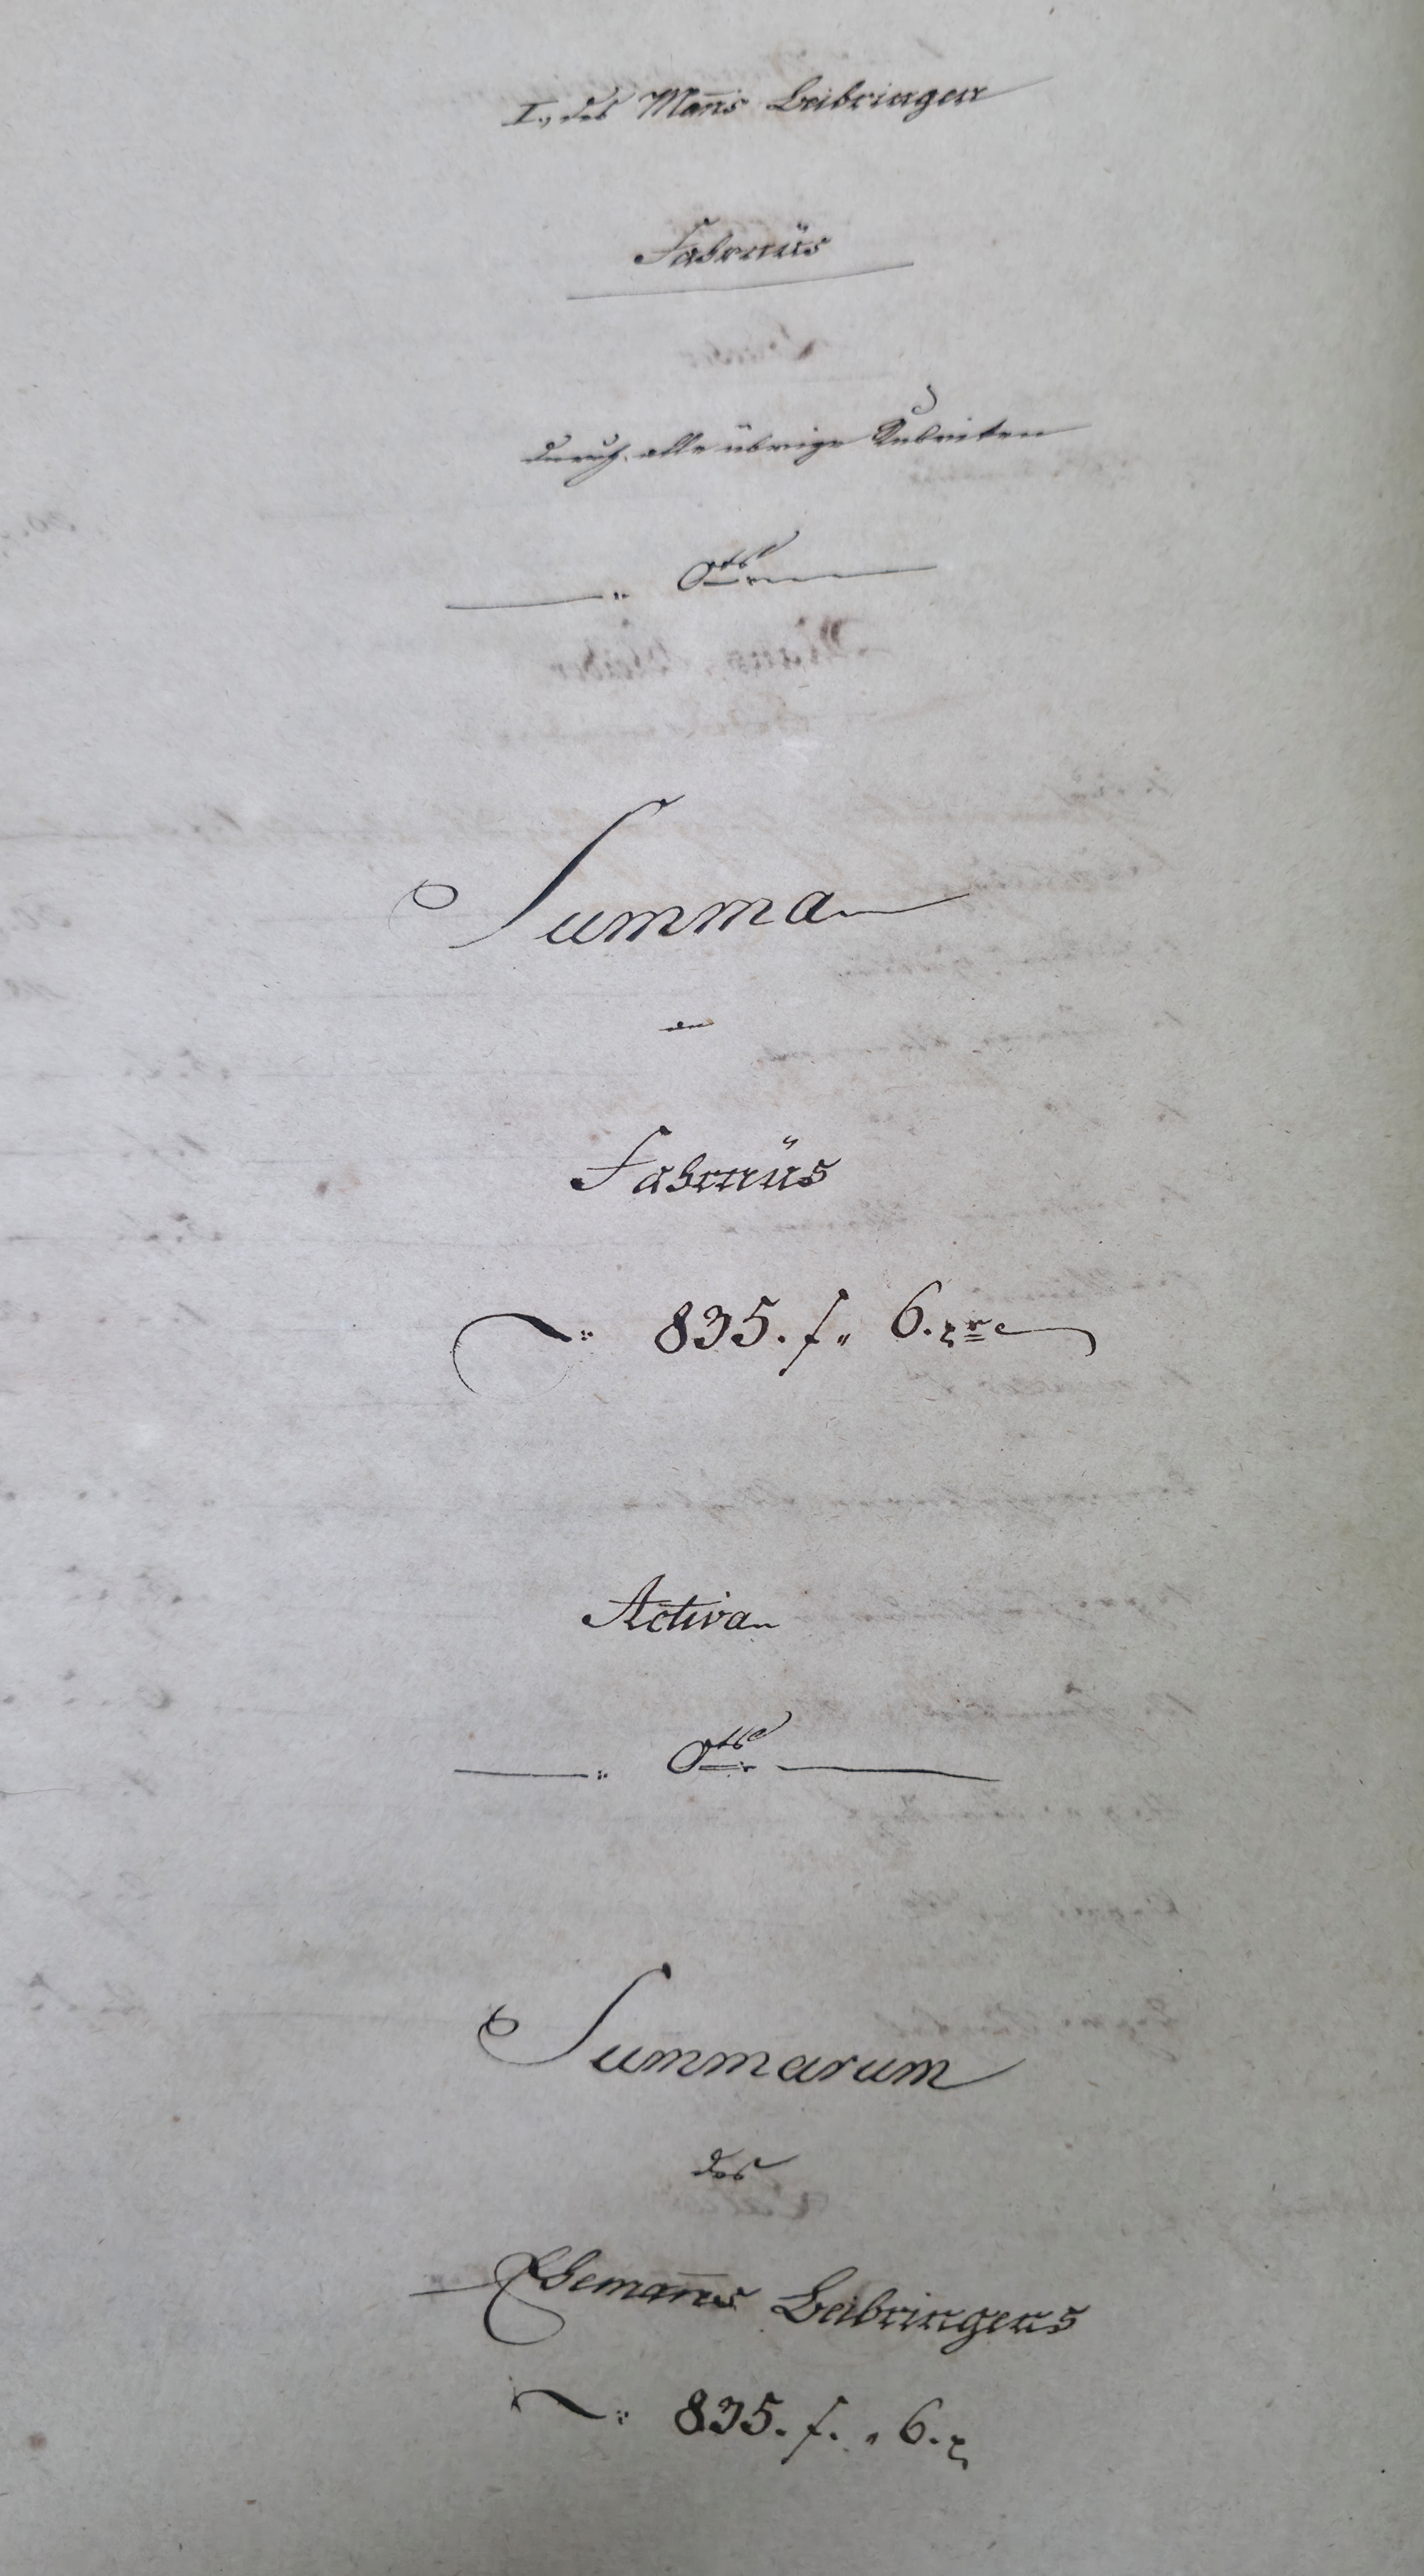 I., des Man̄s Beibringen
Fahrnüs
durch alle übrige Rubriken
0.
Summa
der
Fahrnüs
835. f. 6. xr
Activa
0.
Summarum
des
Eheman̄s Beibringens
835. f. 6. x